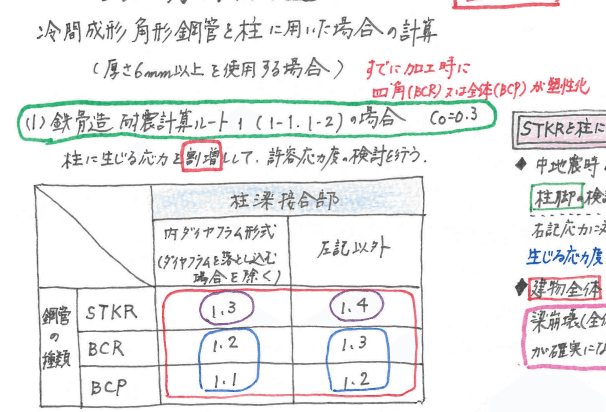 冷間成形角形鋼管を柱に用いた場合の計算
(厚さ6mm以上を使用する場合)
すでに加工時に
四角(BCR)又は全体(BCP)が塑性化
(1) 鉄骨造 耐震計算ルート1 (1-1, 1-2)の場合 Co=0.3
柱に生じる応力を割増しして、許容応力度の検討を行う.
柱梁接合部
内ダイヤフラム形式
(ダイヤフラムを落とし込む
場合を除く)
左記以外
鋼管の種類
STKR 1.3 1.4
BCR 1.2 1.3
BCP 1.1 1.2
STKRを柱に
◆ 中地震時
柱脚の検
右記応力に
生じる応力度
◆建物全体
梁崩壊(全体
が確実に